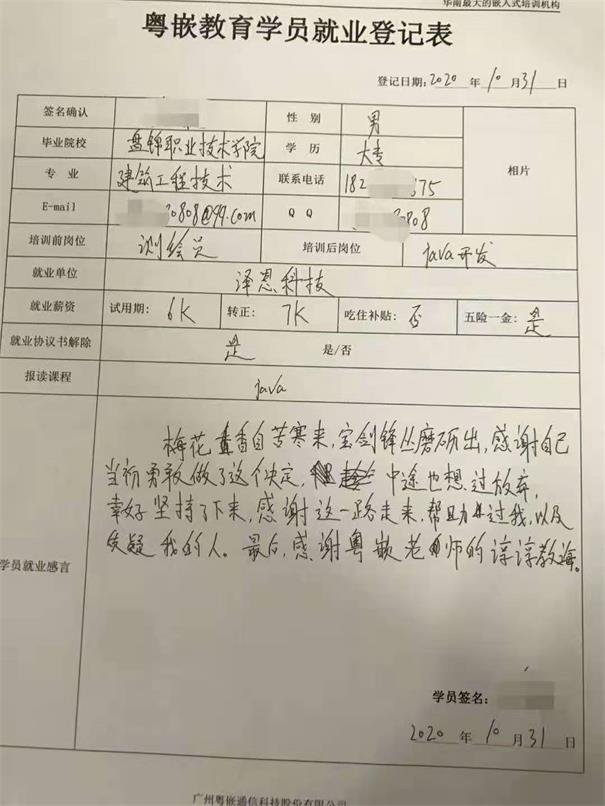 华南最大的嵌入式培训机构
粤嵌教育学员就业登记表
登记日期:2020 年 10 月 31 日
签名确认 性 别 男
毕业院校 盘锦职业技术学院 学 历 大专 相片
专 业 建筑工程技术 联系电话 182 375
E-mail 0808@qq.com Q Q 0808
培训前岗位 测绘员 培训后岗位 java开发
就业单位 泽恩科技
就业薪资 试用期: 6K 转正: 7K 吃住补贴: 否 五险一金: 是
就业协议书解除 是 是/否
报读课程 java
梅花香自苦寒来,宝剑锋从磨砺出,感谢自己
当初勇敢做了这个决定, 中途也想过放弃,
幸好坚持了下来,感谢这一路走来,帮助过我,以及
质疑我的人。最后,感谢粤嵌老师的谆谆教诲。
学员就业感言
学员签名:
2020 年 10 月 31 日
广州粤嵌通信科技股份有限公司